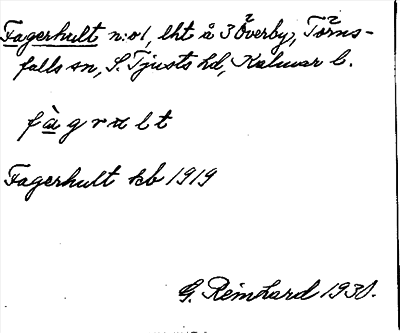 Fagerhult n:o 1, lht å 3 Överby, Törns-
falls sn, S. Tjusts hd, Kalmar l.
fàgrult
Fagerhult kb 1919
G. Reinhard 1930.